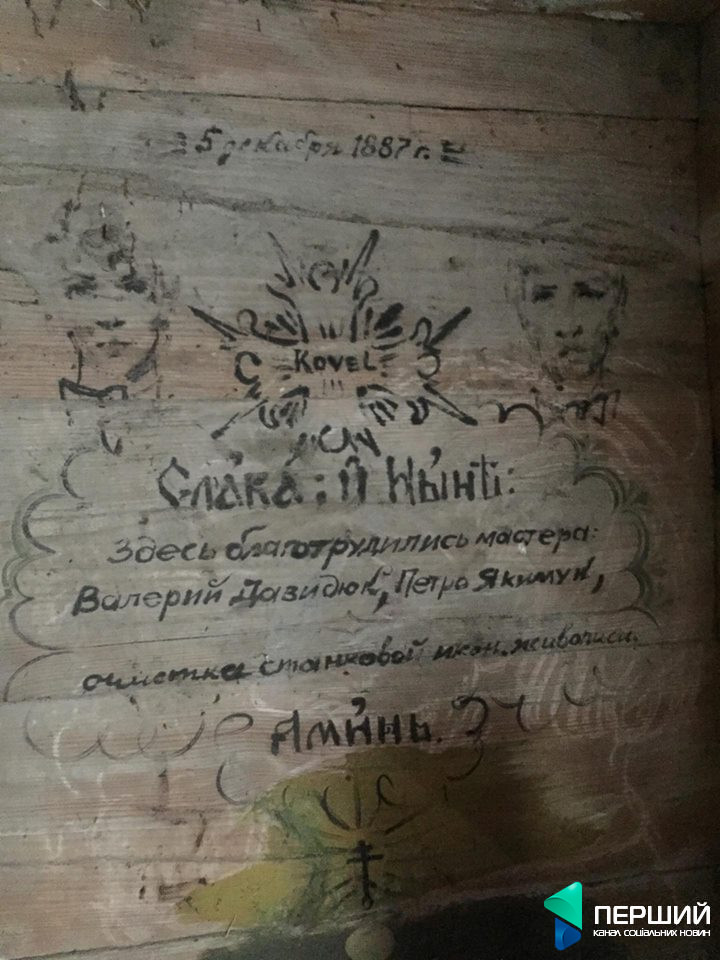 5 декабря 1887 г.
KOVEL
Слáва: Й Ны́нѣ:
Здесь благотрудились мастера:
Валерий Давидюк, Петро Якимук,
очистка станковой икон. живописи.
Ами́нь.
ПЕРШИЙ
КАНАЛ СОЦІАЛЬНИХ НОВИН